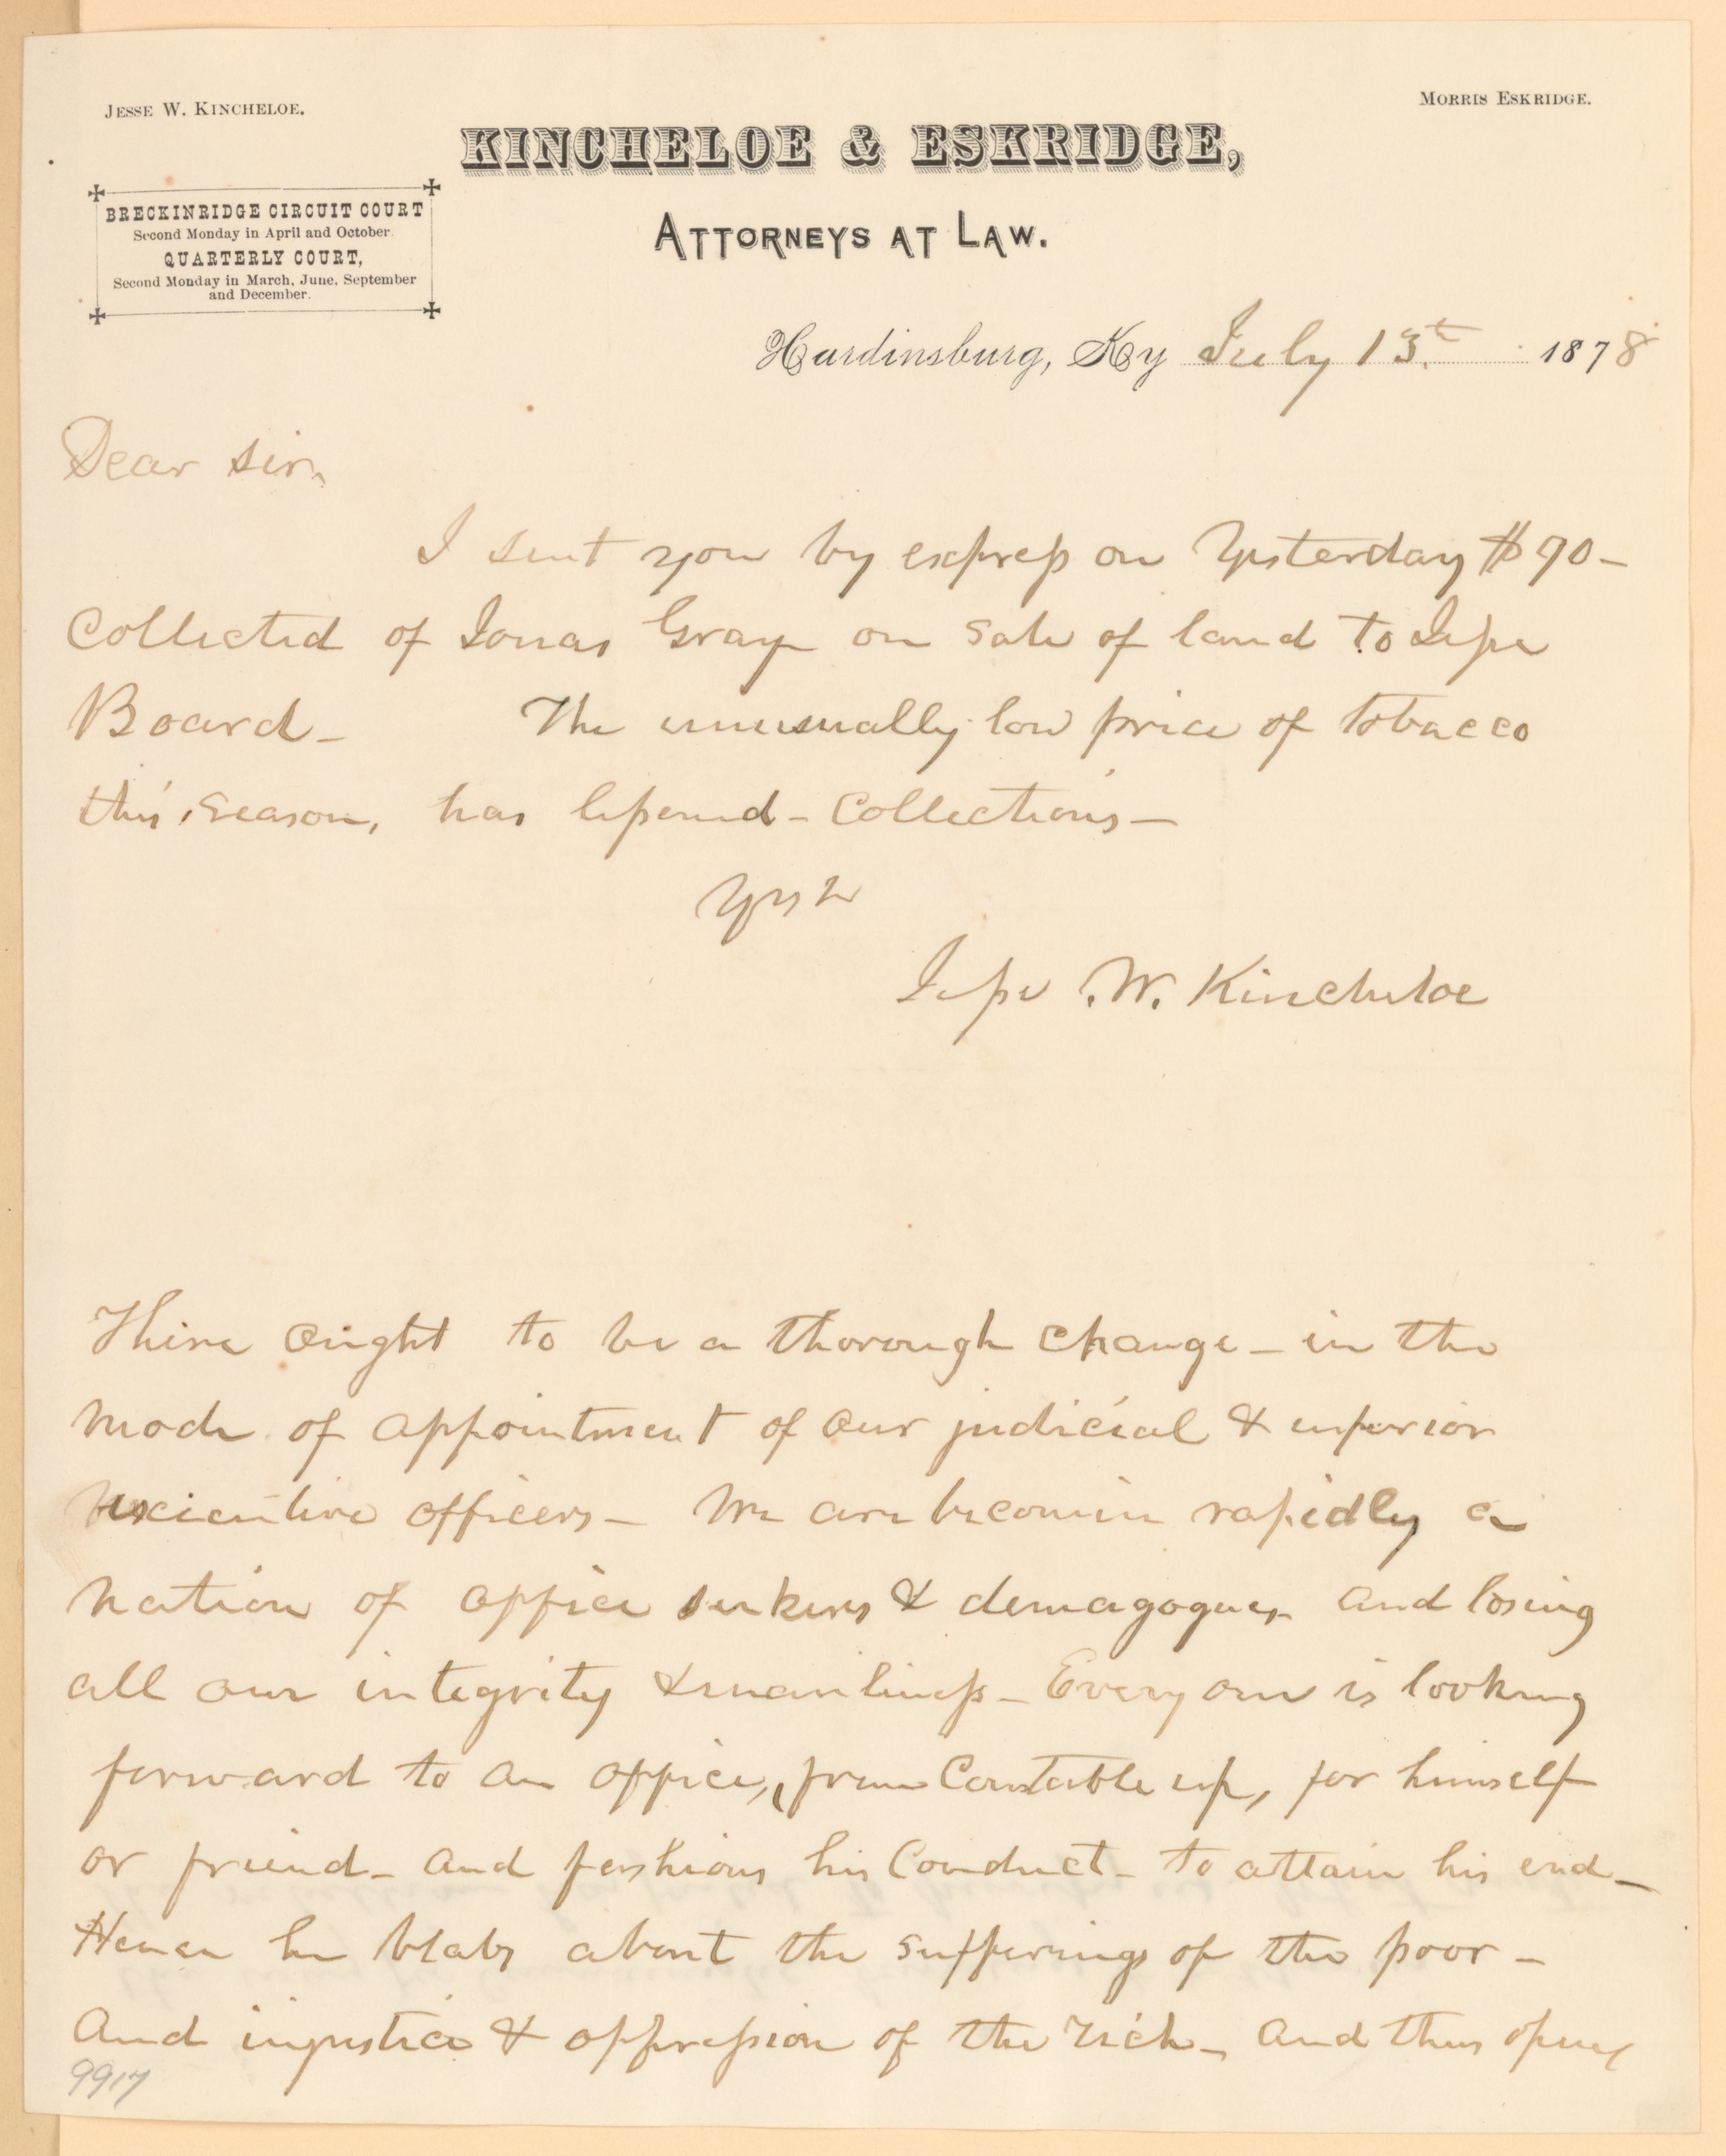 JESSE W. KINCHELOE.
MORRIS ESKRIDGE.
KINCHELOE & ESKRIDGE,
ATTORNEYS AT LAW.
BRECKINRIDGE CIRCUIT COURT
Second Monday in April and October.
QUARTERLY COURT,
Second Monday in March, June, September
and December.
Hardinsburg, Ky July 13th 1878
Dear Sir,
I sent you by express on Yesterday $90-
Collected of Jonas Gray on Sale of land to Jesse
Board - The unusually low price of tobacco
this season, has lessened - Collections -
Yrs &c
Jesse W. Kincheloe
There ought to be a thorough change - in the
mode of appointment of our judicial & inferior
executive officers - We are becomin rapidly a
nation of office seekers & demagogues - and losing
all our integrity & manliness - Every one is looking
forward to an office, from Constable up, for himself
or friend - and fashions his Conduct - to attain his end -
Hence he blabs about the sufferings of the poor -
and injustice & oppression of the rich - and thus
9917